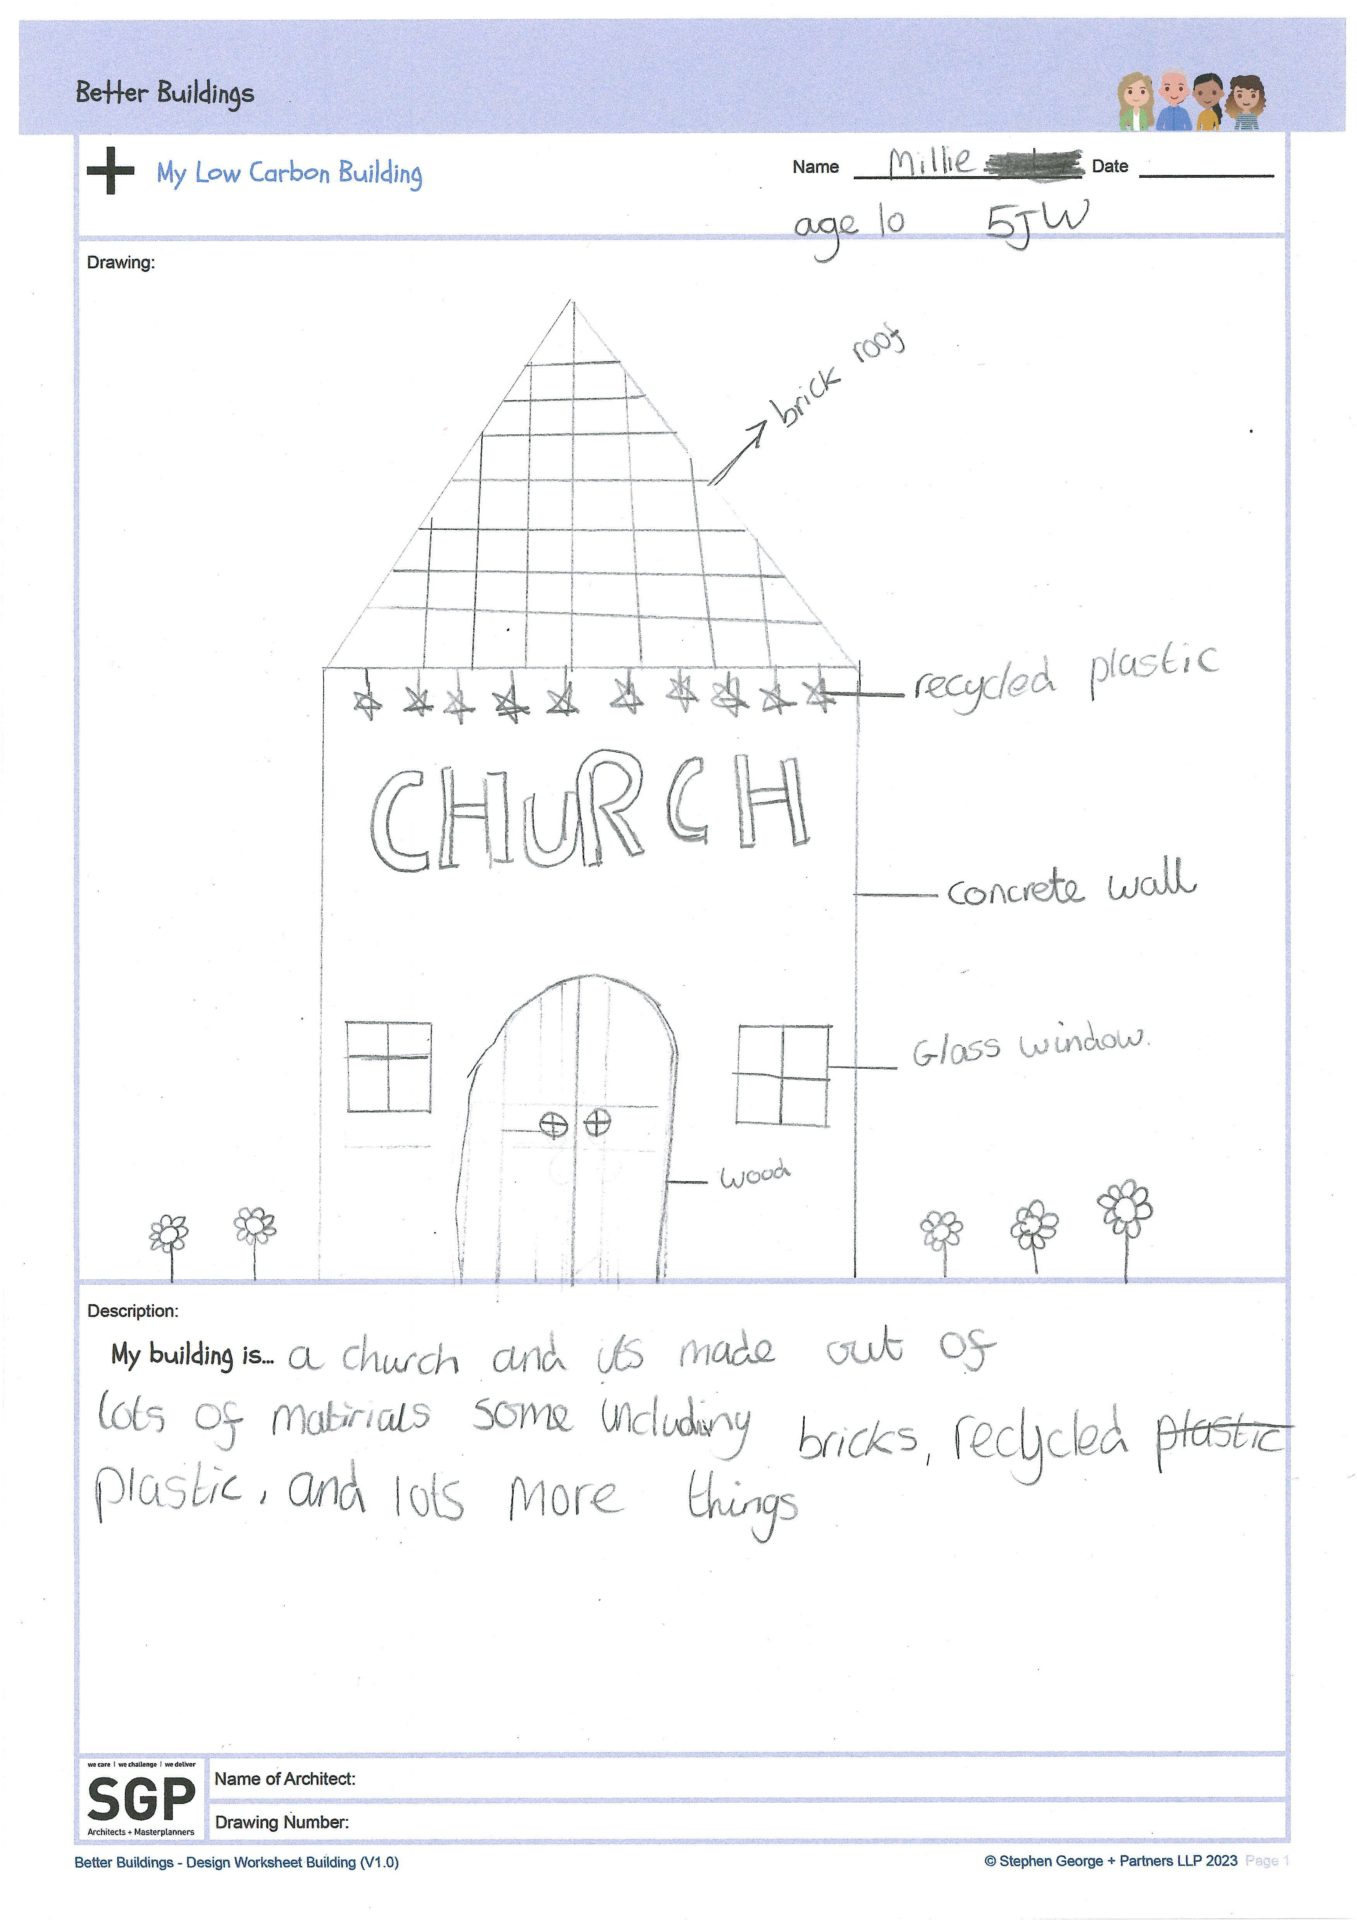 Better Buildings
My Low Carbon Building
Name Millie Date
age 10 5JW
Drawing:
brick roof
recycled plastic
CHURCH
concrete wall
Glass window.
wood
Description:
My building is... a church and its made out of
lots of matirials some including bricks, recycled plastic
plastic, and lots more things
we care | we challenge | we deliver
SGP
Architects + Masterplanners
Name of Architect:
Drawing Number:
Better Buildings - Design Worksheet Building (V1.0)
© Stephen George + Partners LLP 2023 Page 1